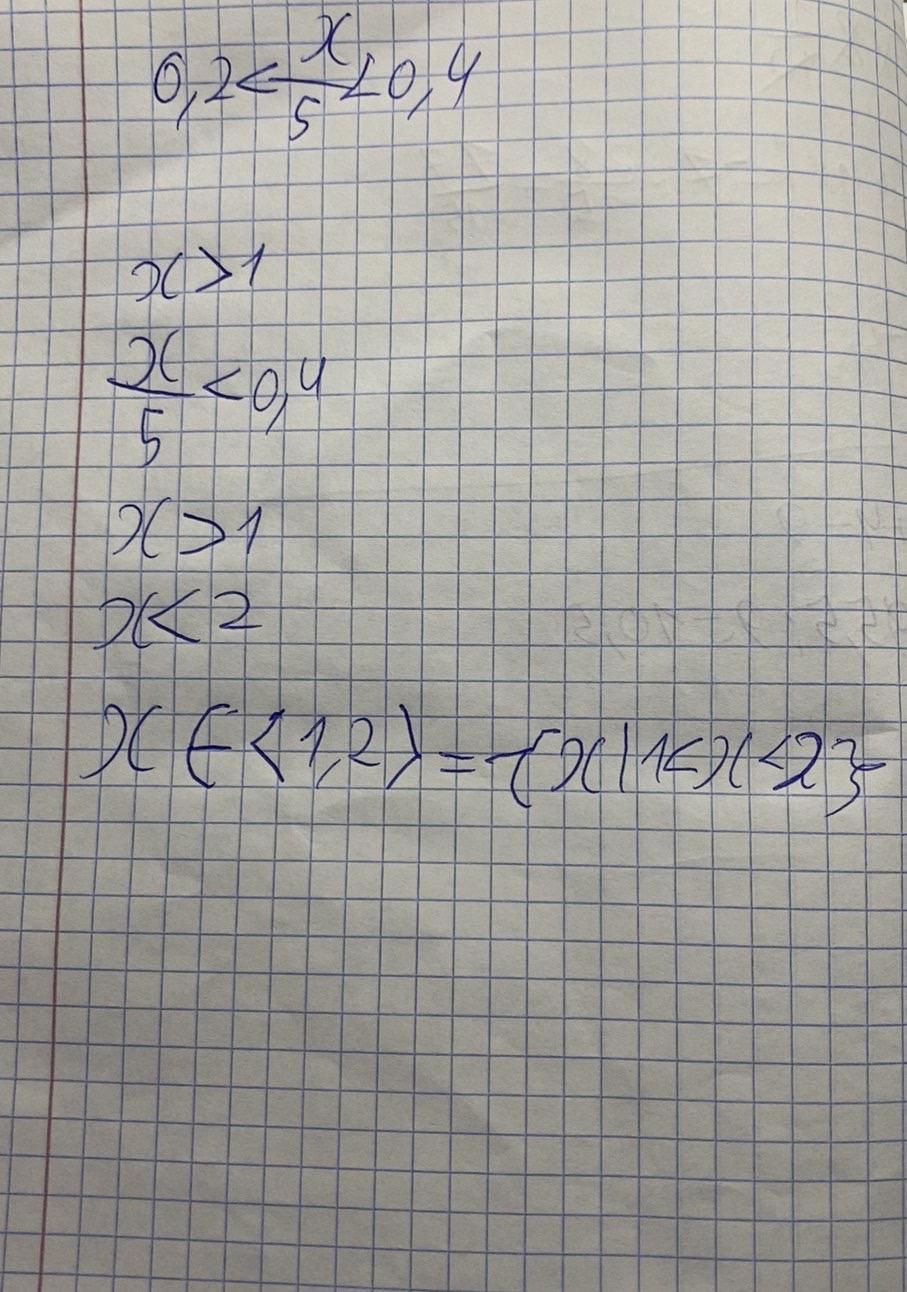 0,2 < x/5 < 0,4
x > 1
x/5 < 0,4
x > 1
x < 2
x ∈ ⟨1,2⟩ = {x | 1 < x < 2}